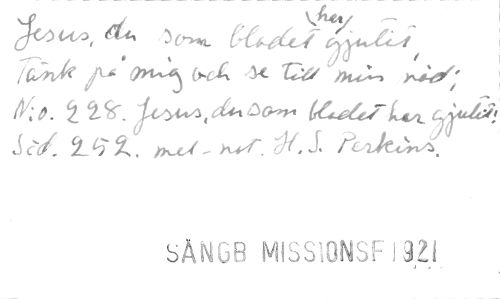 Jesus, du som blodet har gjutit,
Tänk på mig och se till min nöd;
N:o. 228. Jesus, du som blodet har gjutit!
Sid. 252. mel-not. H. S. Perkins.
SÅNGB MISSIONSF 1921